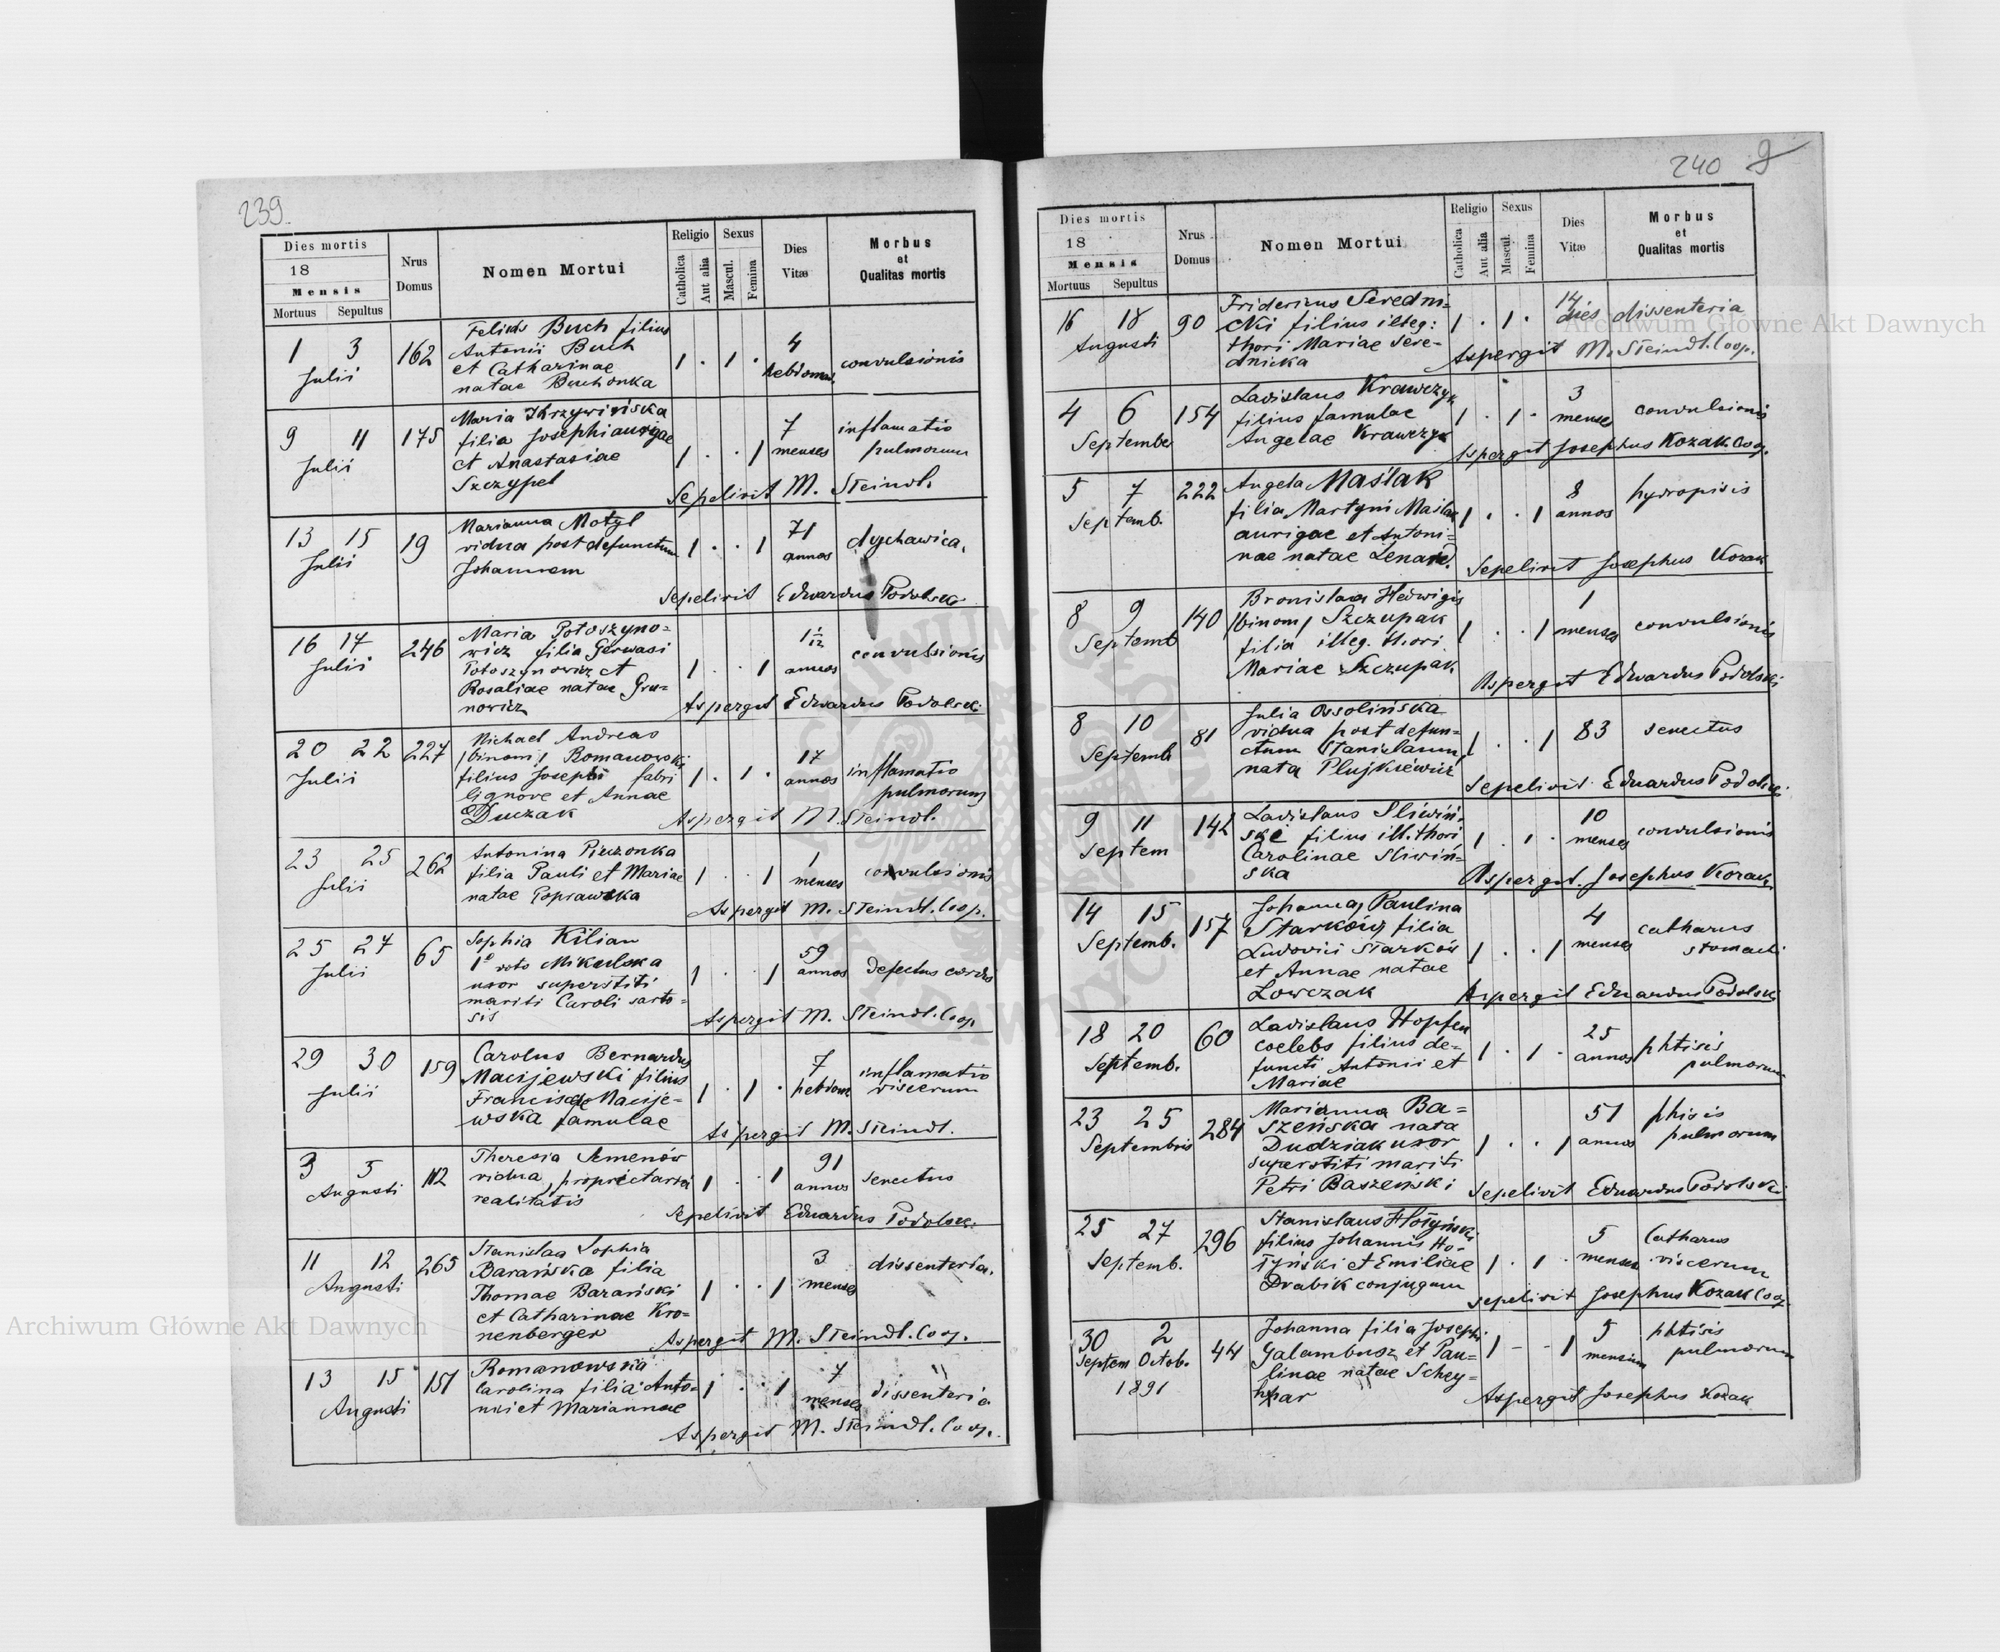 239.
Dies mortis
18
Mensis
Mortuus Sepultus
Nrus
Domus
Nomen Mortui
Religio
Catholica
Aut alia
Sexus
Mascul.
Femina
Dies
Vitæ
Morbus
et
Qualitas mortis
1 3
Julii
162
Felicis Buch filius
Antonii Buch
et Catharinae
natae Buchonka
1 . 1 .
4
hebdomas
convulsionis
9 11
Julii
175
Maria Skrzywińska
filia Josephi aurigae
et Anastasiae
Szczypel
1 . . 1
7
menses
inflamatio
pulmorum
Sepelivit M. Steindl.
13 15
Julii
19
Marianna Motyl
vidua post defunctum
Johannem
1 . . 1
71
annos
dychawica.
Sepelivit Edwardus Podolski
16 17
Julii
246
Maria Potoszyno=
wicz filia Gerwasi
Potoszynowicz et
Rosaliae natae Gru=
nowicz
1 . . 1
1 1/12
annos
convulsionis
Aspergit Edwardus Podolski
20 22
Julii
227
Michael Andreas
/binom/ Romanowski
filius Josephi fabri
lignove et Annae
Duczak
1 . 1 .
17
annos
inflamatio
pulmorum
Aspergit M. Steindl.
23 25
Julii
262
Antonina Piuzonka
filia Pauli et Mariae
natae Poprawska
1 . . 1
1
menses
convulsionis
Aspergit M. Steindl. Coop.
25 27
Julii
65
Sophia Kilian
1º voto Mikulska
uxor superstiti
mariti Caroli sarto=
sis
1 . . 1
59
annos
defectus cordis
Aspergit M. Steindl. Coop
29 30
Julii
159
Carolus Bernardus
Macijewski filius
Franciscae Macije=
wska famulae
1 . 1 .
7
hebdom
inflamatio
viscerum
Aspergit M. Steindl.
3 5
Augusti
112
Theresia Semenów
vidua, proprietaria
realitatis
1 . . 1
91
annos
senectus
Sepelivit Eduardus Podolski
11 12
Augusti
265
Stanislaa Sophia
Barańska filia
Thomae Barański
et Catharinae Kro=
nenberger
1 . . 1
3
menses
dissenteria.
Aspergit M. Steindl. Coop.
13 15
Augusti
151
Romanowska
Carolina filia Anto=
nii et Mariannae
1 . . 1
7
menses
dissenteria
Aspergit M. Steindl. Coop.
240 9
Dies mortis
18
Mensis
Mortuus Sepultus
Nrus
Domus
Nomen Mortui
Religio
Catholica
Aut alia
Sexus
Mascul.
Femina
Dies
Vitæ
Morbus
et
Qualitas mortis
16 18
Augusti
90
Fridericus Seredni=
cki filius illeg:
thori Mariae Sere=
dnicka
1 . 1 .
14
dies
dissenteria
Aspergit M. Steindl. Coop.
4 6
September
154
Ladislaus Krawczyk
filius famulae
Angelae Krawczyk
1 . 1 .
3
menses
convulsionis
Aspergit Josephus Kozak Coop.
5 7
Septemb.
222
Angela Maślak
filia Martyni Maślak
aurigae et Antoni=
nae natae Lenard.
1 . . 1
8
annos
hydropisis
Sepelivit Josephus Kozak
8 9
Septemb
140
Bronislaa Hedwigis
/binom/ Szczupak
filia illeg. thori
Mariae Szczupak
1 . . 1
1
menses
convulsionis
Aspergit Edwardus Podolski
8 10
Septemb
81
Julia Ossolińska
vidua post defun=
ctum Stanislaum,
nata Plujkiewicz
1 . . 1
83
senectus
Sepelivit Eduardus Podolski
9 11
Septem
142
Ladislaus Sliwiń=
ski filius ill. thori
Carolinae Sliwiń=
ska
1 . 1 .
10
menses
convulsionis
Aspergit. Josephus Kozak
14 15
Septemb.
157
Johanna, Paulina
Starków, filia
Ludovici Starków
et Annae natae
Lowczak
1 . . 1
4
menses
catharus
stomachi
Aspergit Eduardus Podolski
18 20
Septemb.
60
Ladislaus Hopfen
coelebs filius de=
functi Antonii et
Mariae
1 . 1 .
25
annos
phtisis
pulmorum
23 25
Septembris
284
Marianna Ba=
szeńska nata
Dudziak uxor
superstiti mariti
Petri Baszeński
1 . . 1
51
annos
phisis
pulmorum
Sepelivit Eduardus Podolski
25 27
Septemb.
296
Stanislaus Hołyński
filius Johannis Ho=
łyński et Emiliae
Drabik conjugum
1 . 1 .
5
menses
Catharus
viscerum
Sepelivit Josephus Kozak Coop.
30 2
Septem Octob.
1891
44
Johanna filia Josephi
Galambosz et Pau=
linae natae Schey=
har
1 - - 1
5
mensium
phtisis
pulmorum
Aspergit Josephus Kozak
Archiwum Główne Akt Dawnych
Archiwum Główne Akt Dawnych